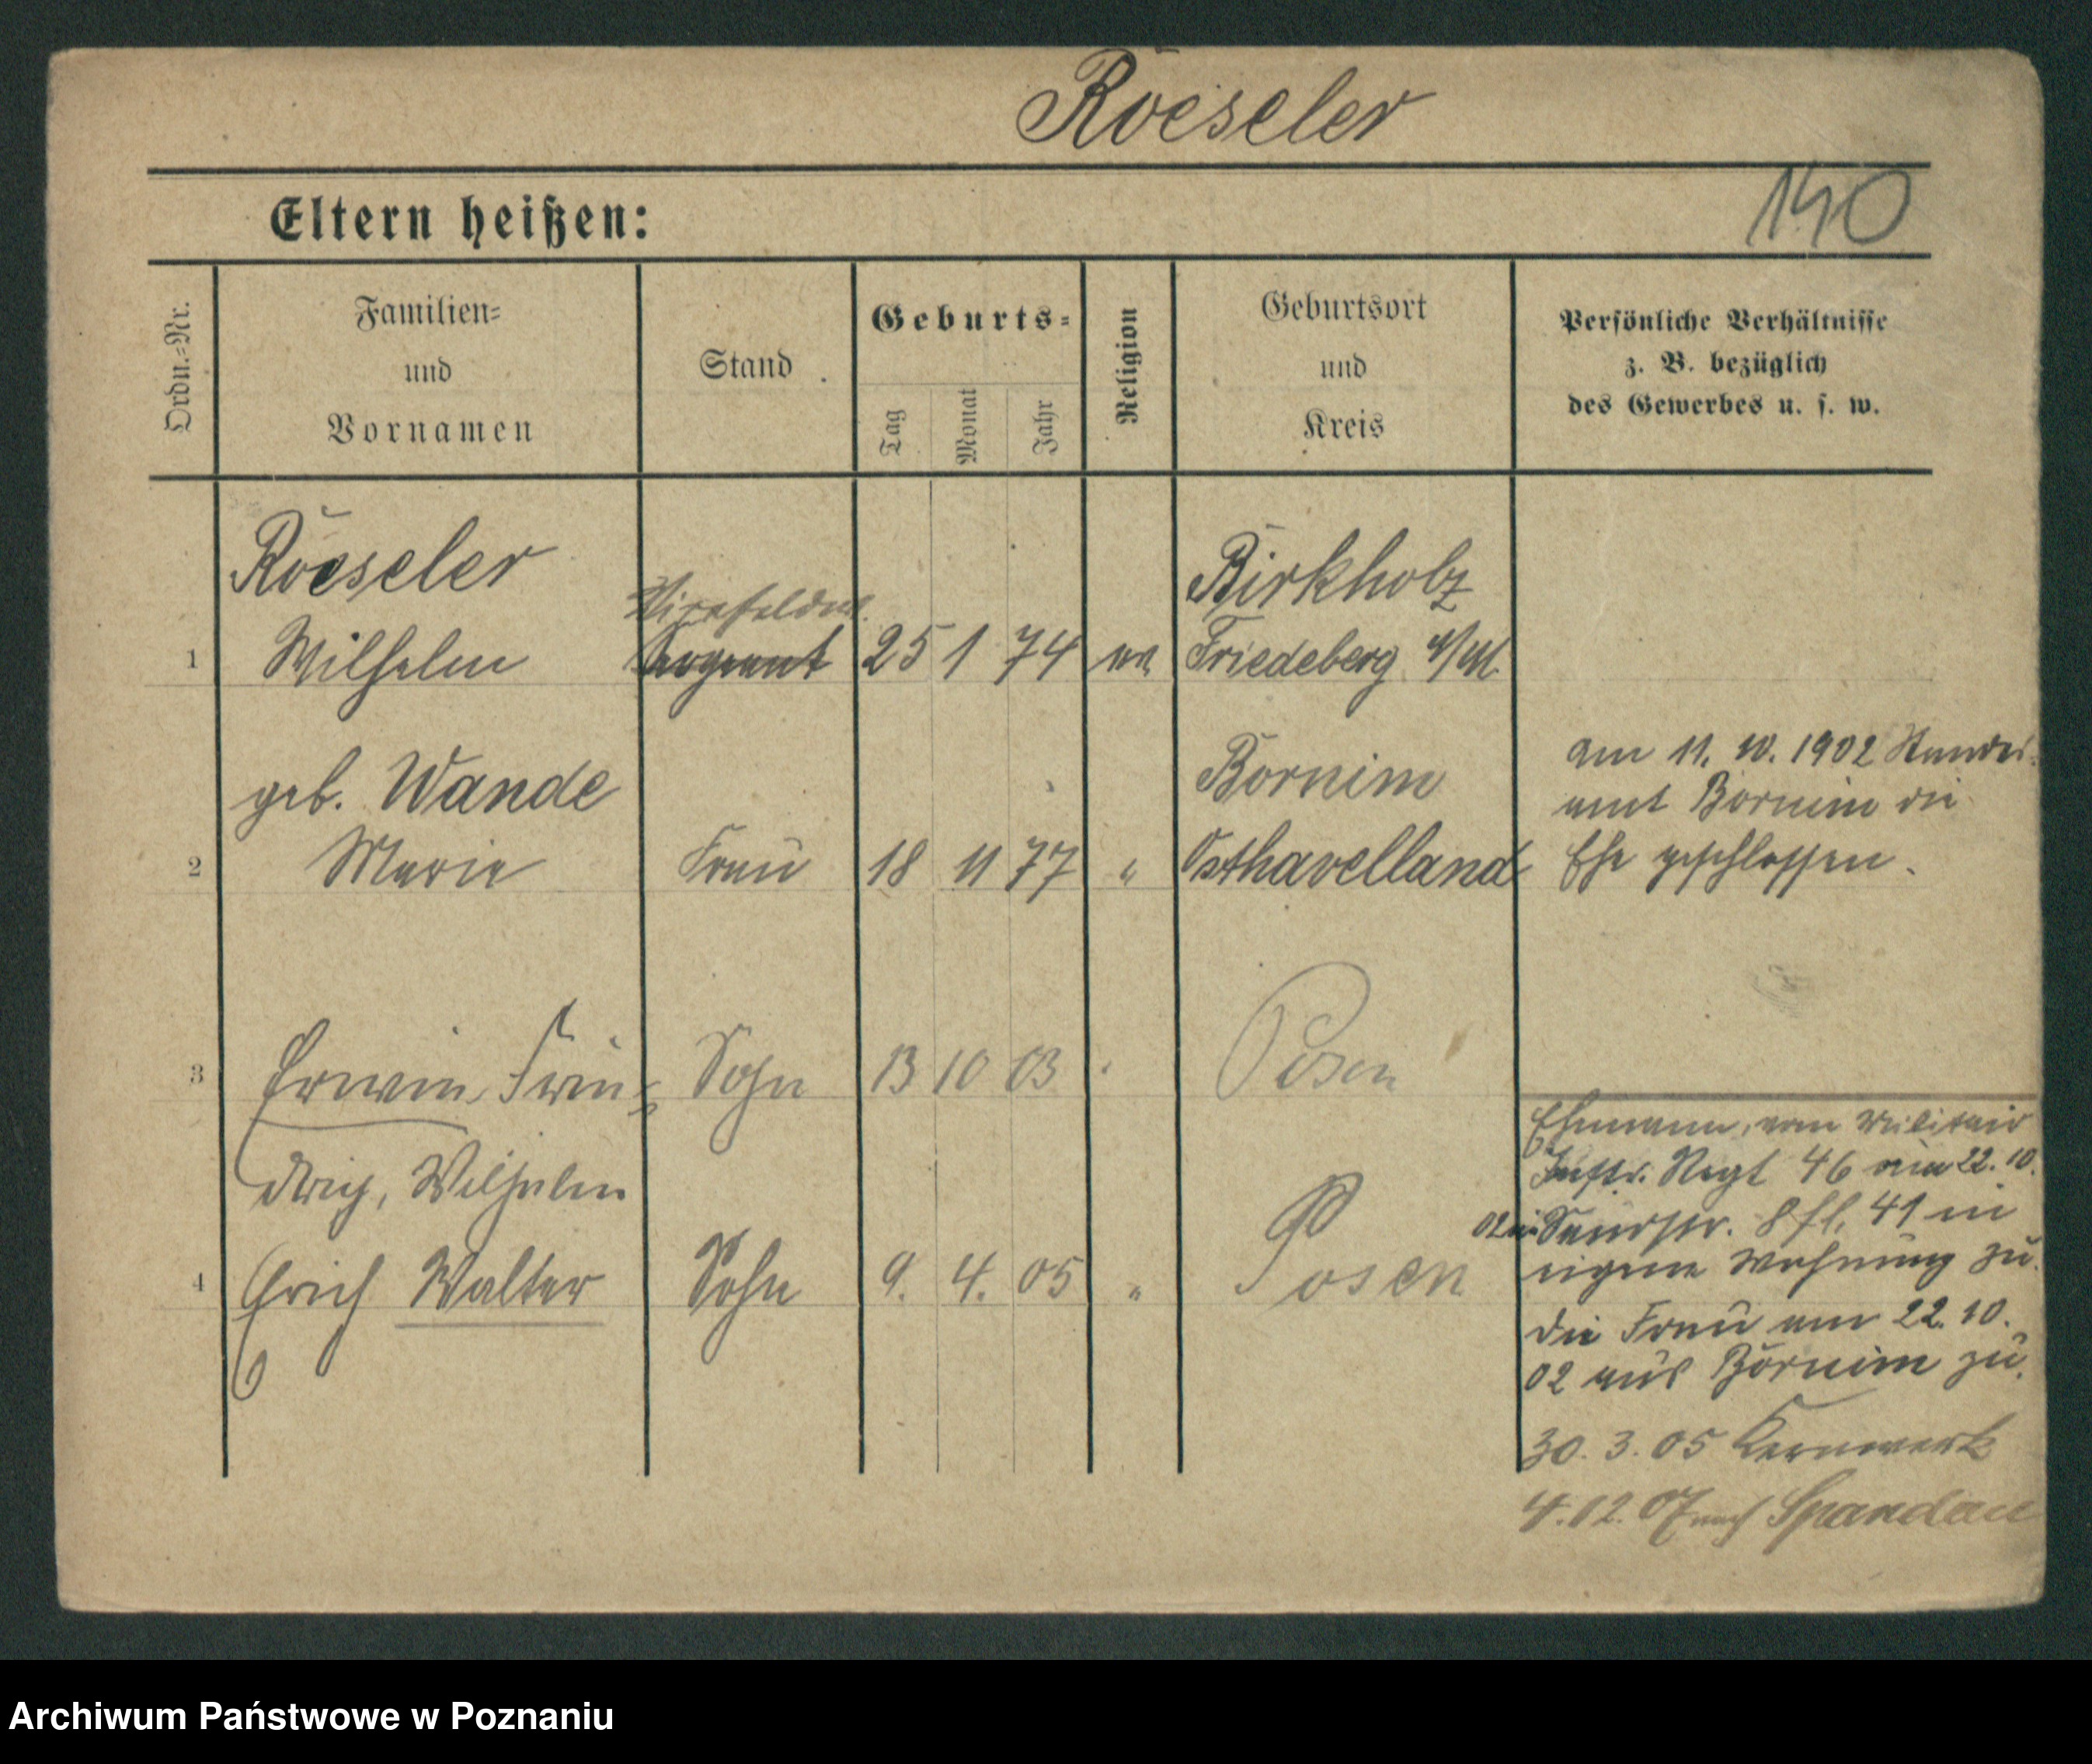 Roeseler
Eltern heißen:
140
Ordn.=Nr.
Familien=
und
Vornamen
Stand
Geburts=
Tag
Monat
Jahr
Religion
Geburtsort
und
Kreis
Persönliche Verhältnisse
z. B. bezüglich
des Gewerbes u. s. w.
Roeseler
Birkholz
Vizefeldw.
1 Wilhelm Sergeant 25 1 74 ev. Friedeberg N/M.
geb. Wande
Bornim
2 Marie Frau 18 11 77 " Osthavelland
am 11. 10. 1902 Standes-
amt Bornim die
Ehe geschlossen.
3 Erwin, Frie= Sohn 13 10 03 Posen
drich, Wilhelm
4 Erich Walter Sohn 9. 4. 05 " Posen
Ehemann, vom Militair
Inftr. Regt 46 am 22. 10.
02 in 41 in
eigene Wohnung zu.
die Frau am 22. 10.
02 aus Bornim zu.
30. 3. 05 Kernwerk
4. 12. 07 nach Spandau
Archiwum Państwowe w Poznaniu